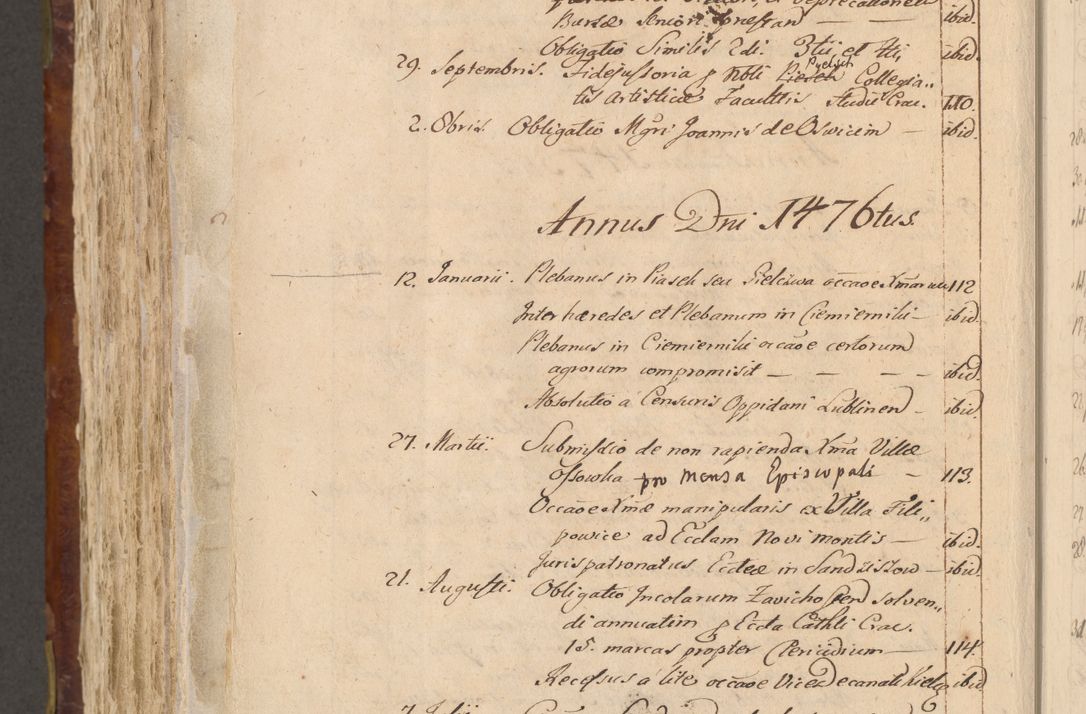 Bursæ Seniori præstan — — ibid.
Obligatio Similis 2di. 3tii et 4ti, ibid.
29. Septembris. Fidejussoria p Nobli Piesch Pyelsch Collegia„
tis Artisticæ Facultis Studii Crac. 110.
2. Obris. Obligatio Mgri Joannis de Oswicim — ibid.
Annus Dni 1476tus.
12. Januarii. Plebanus in Piasek seu Sielciwa occaoe Xmarum 112
Inter hæredes et Plebanum in Ciemiernili — ibid.
Plebanus in Ciemiernili occaoe certorum
agrorum compromisit — — — — ibid.
Absolutio a Censuris Oppidani Lublinen — ibid.
27. Martii. Submissio de non rapienda Xma Villæ
Ossowka pro Mensa Episcopali — 113.
Occaoe Xmæ manipularis ex Villa Fili„
powice ad Ecclam Novi montis — ibid.
Juris patronatus Eccleæ in Sandziszow — ibid.
21. Augusti. Obligatio Incolarum Zavichosten solven„
di annuatim p Eccla Cathli Crac.
15. marcas propter Pericidium — 114.
Recessus a lite occaoe Vicedecanatus Kielc. ibid.